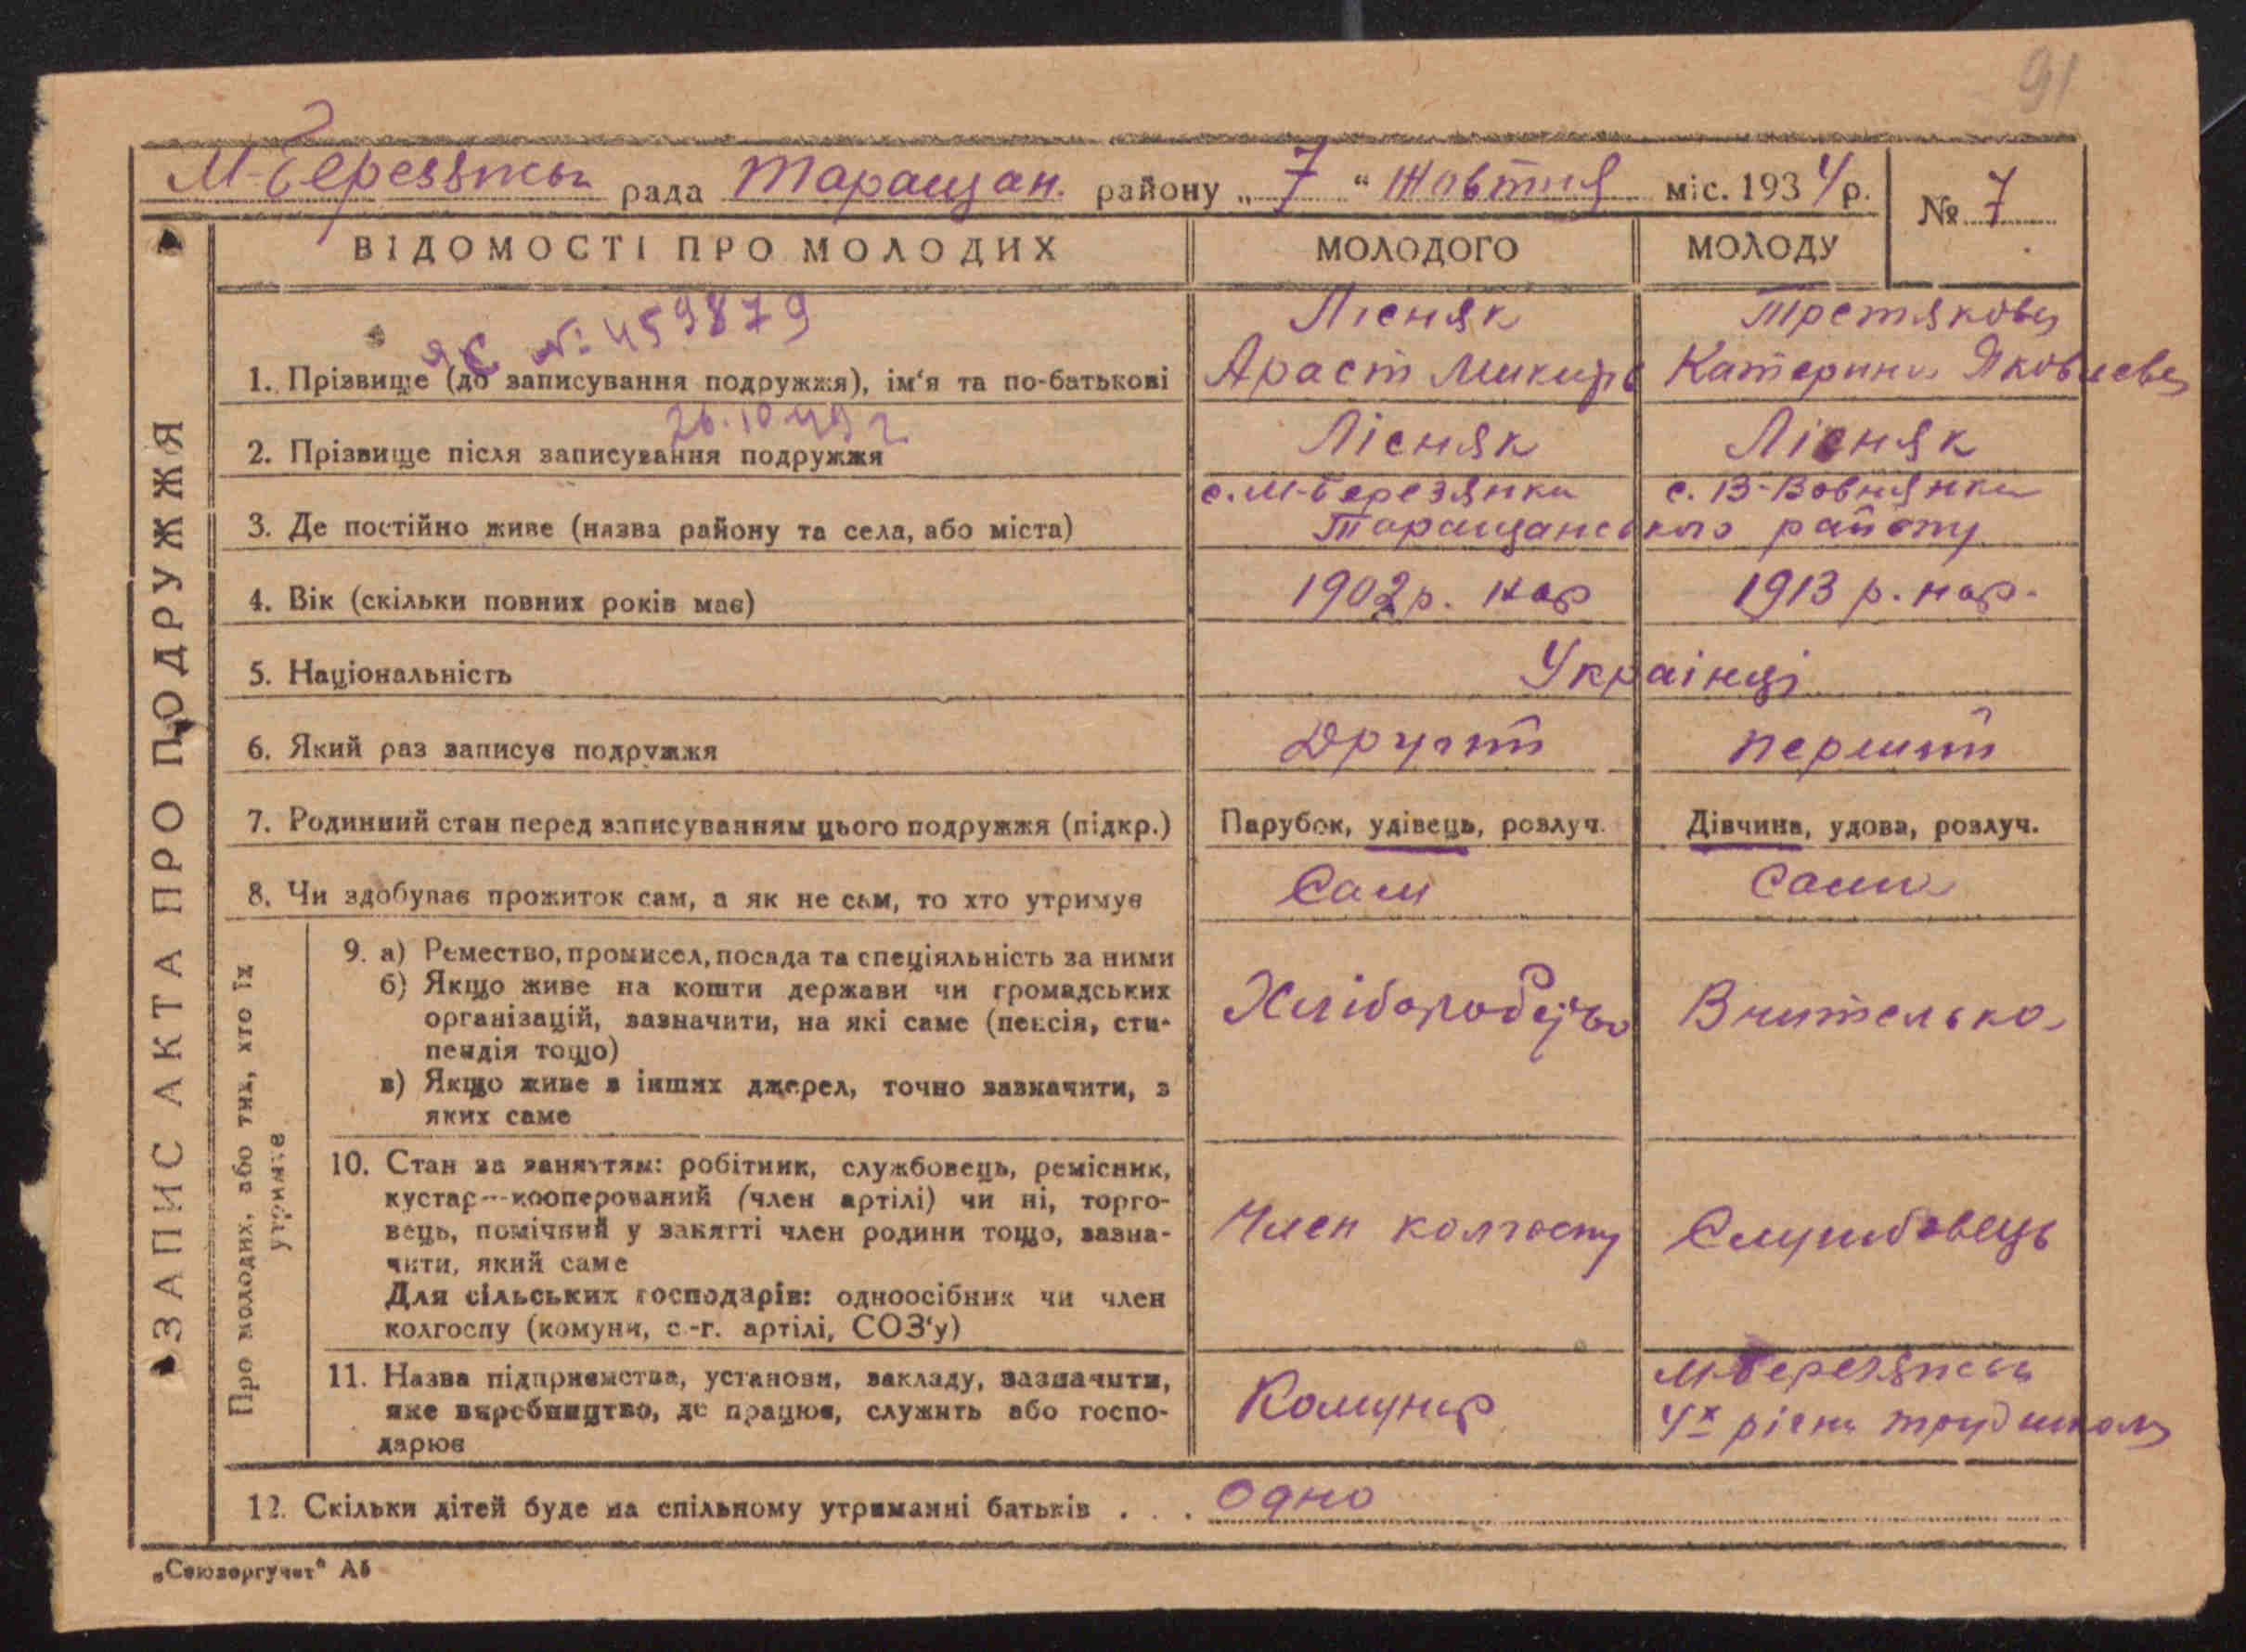 91
М-Березянськ рада Таращан. району „ 7 “ Жовтня міс. 1934 р. № 7
ЗАПИС АКТА ПРО ПОДРУЖЖЯ
ВІДОМОСТІ ПРО МОЛОДИХ МОЛОДОГО МОЛОДУ
ЯЄ №: 459879
Лісняк Третякова
1. Прізвище (до записування подружжя), ім‘я та по-батькові Араст Микир Катерина Яковлева
26.10.49 г.
2. Прізвище після записування подружжя Лісняк Лісняк
с. М-Березянки с. В-Вовнянки
3. Де постійно живе (назва району та села, або міста) Таращанського району
4. Вік (скільки повних років має) 1902 р. нар 1913 р. нар.
5. Національність Українці
6. Який раз записує подружжя Другий перший
7. Родинний стан перед записуванням цього подружжя (підкр.) Парубок, удівець, розлуч. Дівчина, удова, розлуч.
8. Чи здобуває прожиток сам, а як не сам, то хто утримує Сам Сама
Про молодих, або тих, хто їх утримує
9. а) Ремество, промисел, посада та спеціяльність за ними
б) Якщо живе на кошти держави чи громадських
організацій, зазначити, на які саме (пенсія, сти-
пендія тощо)
Хліборобство Вчителька
в) Якщо живе з інших джерел, точно зазначити, з
яких саме
10. Стан за заняттям: робітник, службовець, ремісник,
кустар--кооперований (член артілі) чи ні, торго-
вець, помічний у занятті член родини тощо, зазна-
чити, який саме
Член колгоспу Службовець
Для сільських господарів: одноосібник чи член
колгоспу (комуни, с.-г. артілі, СОЗ‘у)
11. Назва підприємства, установи, закладу, зазначити,
яке виробництво, де працює, служить або госпо-
дарює
М-Березянськ
4х річна труд школа
12. Скільки дітей буде на спільному утриманні батьків . . . Одно
„Союзоргучет“ А5